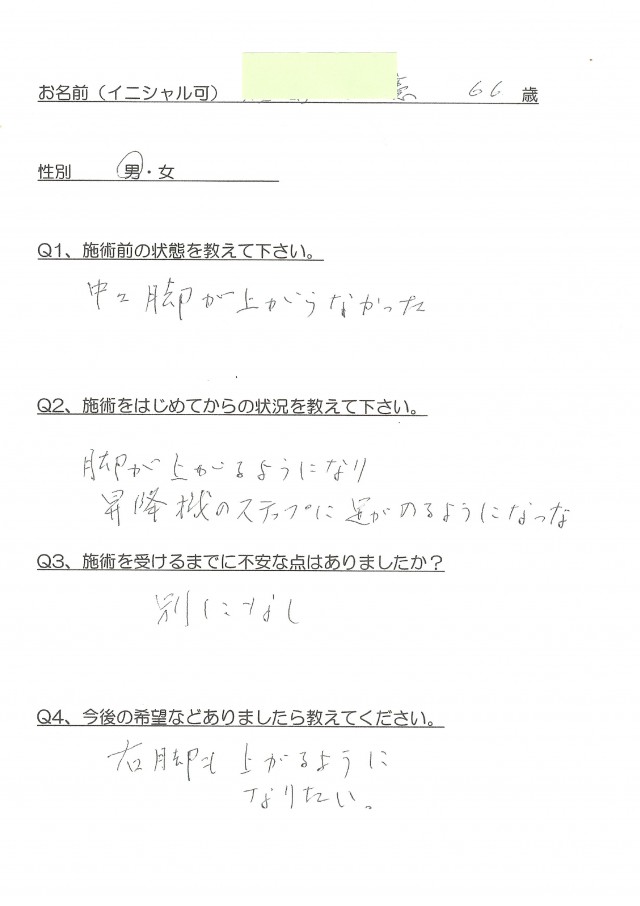 お名前（イニシャル可） 憲 66 歳
性別 男・女
Q1、施術前の状態を教えて下さい。
脚が上がらなかった
Q2、施術をはじめてからの状況を教えて下さい。
脚が上がるようになり
昇降機のステップに足がのるようになった
Q3、施術を受けるまでに不安な点はありましたか？
別になし
Q4、今後の希望などありましたら教えてください。
右脚も上がるように
なりたい。